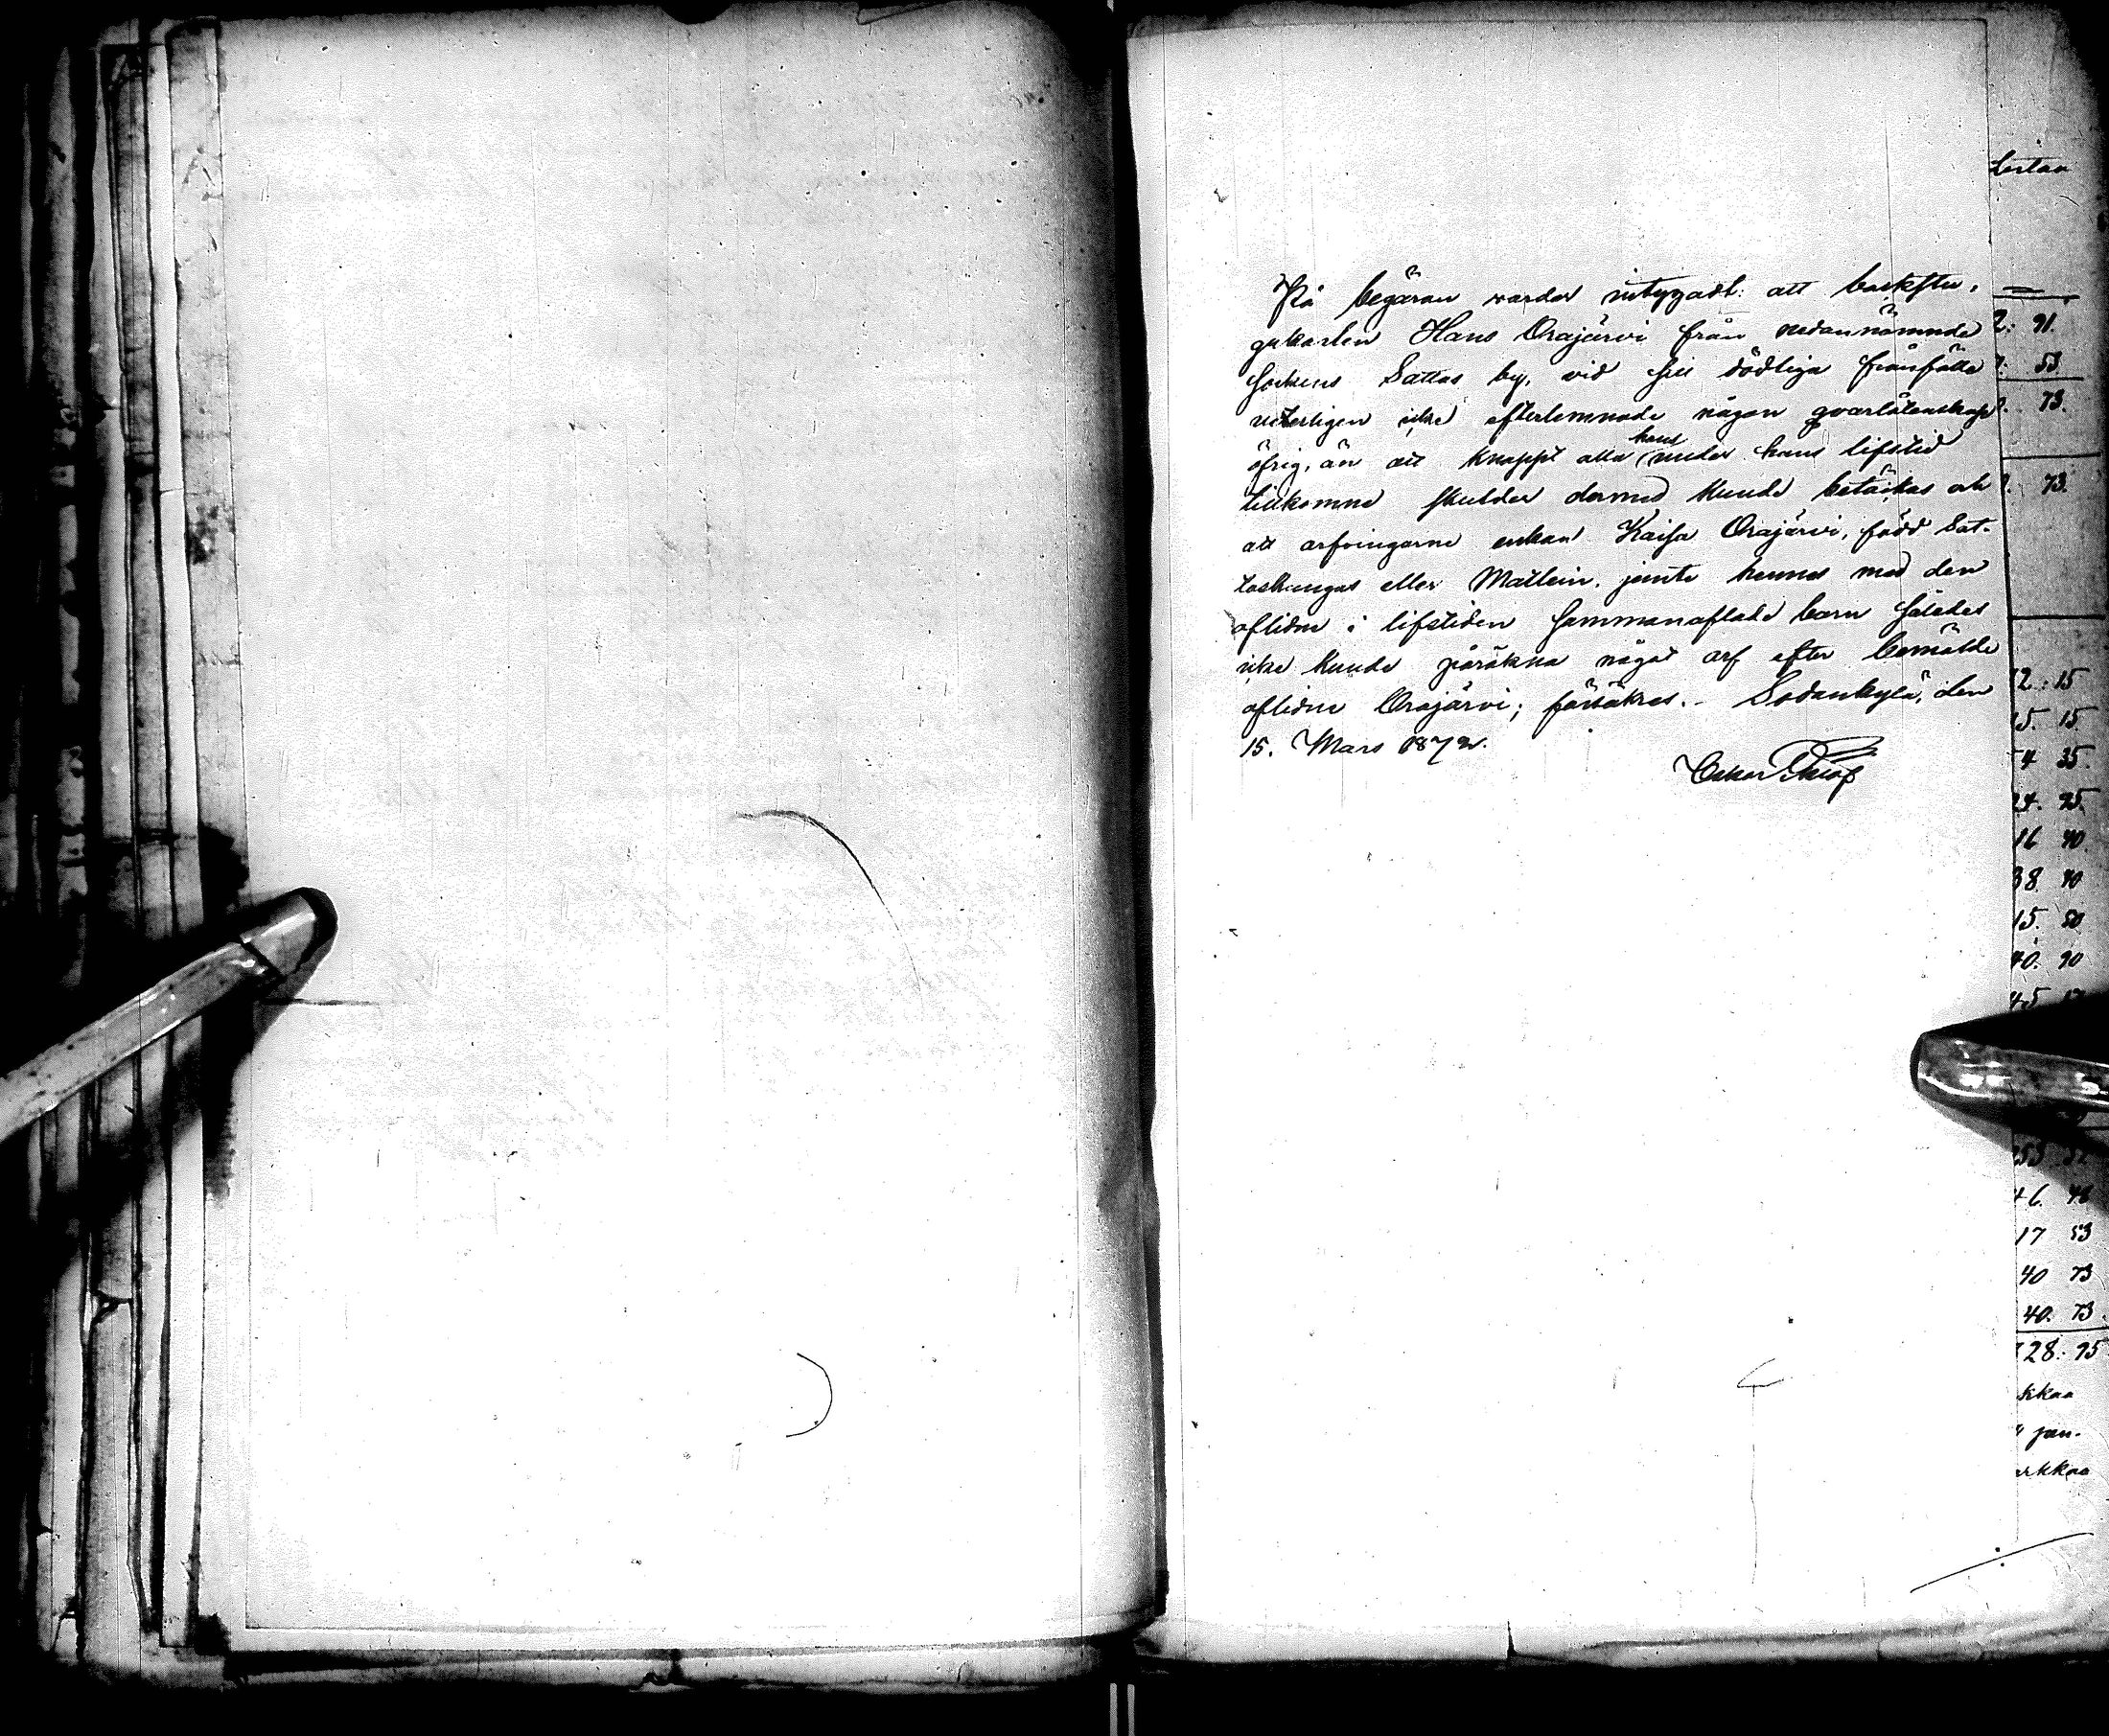 På begäran wardar intygadt: att backstu-
gukarlen Hans Orajärvi från nedannämnde
Sockens Sattas by, vid sitt dödliga frånfälle
veterligen icke efterlemnade någon qvarlåtenskap
öfrig, än att knappt alla hans under hans lifstid
tillkomne skulder dermed kunde betäckas och
att arfvingarne enkan Kaisa Orajärvi, född Sat-
taskungas eller Mattein, jemte hennes med den
aflidne i lifstiden sammanaflade barn således
icke kunde påräkna något arf efter bemälde
aflidne Orajärvi; försäkras. - Sodankylä, den
15. Mars 1872.
Oskar
91.
53
73.
73.
2: 15
5. 15.
4 35.
24. 95.
16 40.
38. 40
15. 50
40. 90
46. 48
17 53
40 73
40. 73.
28: 95
kkaa
jan-
arkkaa